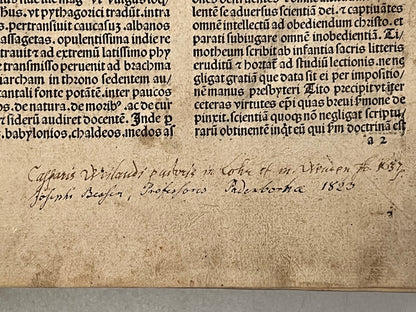 thus. vt pythagorici tradut. intra
s. pertransiuit caucasū. albanos
assagetas. opulentissima indie re
trauit ⁊ ad extremū latissimo phy
e transmisso peruenit ad brachma
archam in throno sedentem au
antali fonte potātē. inter paucos
os. de natura. de moribꝰ. ac de cur
siderū audiret docentē. Inde p
s. babylonios. chaldeos. medos as
lentē se aduersus scientiā dei. ⁊ captiuātes
omnē intellectū ad obediendum christo. et
parati subiugare omnē inobedientiā. Ti
motheum scribit ab infantia sacris litteris
eruditū ⁊ hortat̄ ad studiū lectionis. ne neg
gligat gratiā que data sit ei per impositio
nē manus presbyteri. Tito precipit vt inter
ceteras virtutes ep̄i quas breui sermone de
pinxit. scientiā quoqꝫ nō negligat scriptu
rarū obtinentē inq̄t eū qui sm̄ doctrinā est
a 2
Casparis in Lohr et in
Josephi Professoris Paderbornae 1823